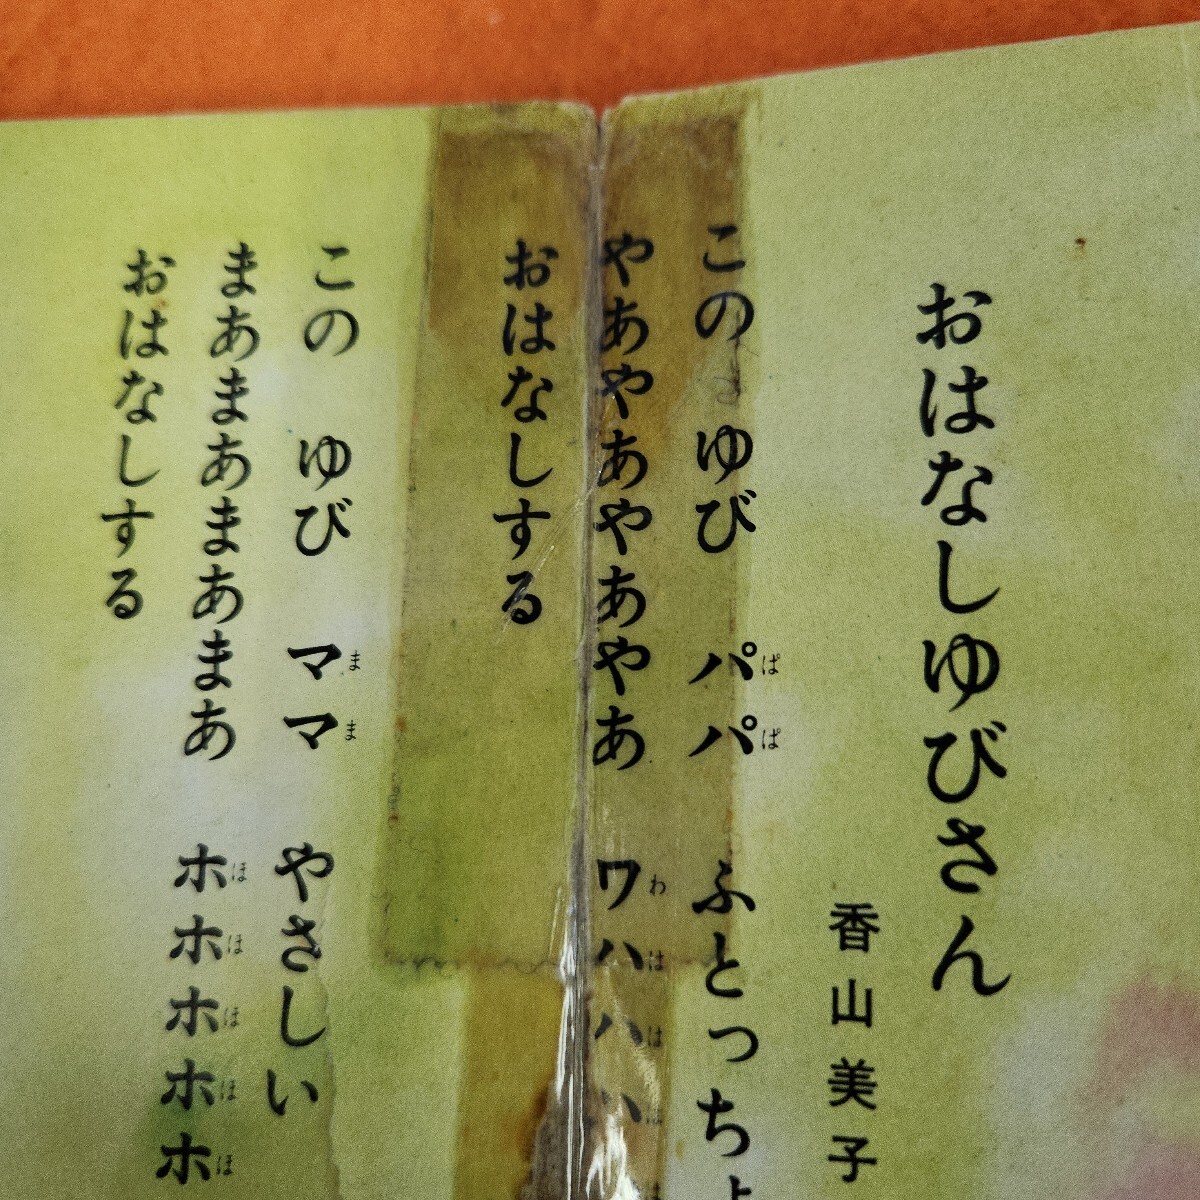 おはなしゆびさん
香山美子
この ゆび パパ ふとっちょ
やあやあやあやあ ワハハハ
おはなしする
この ゆび ママ やさしい
まあまあまあまあ ホホホホホ
おはなしする